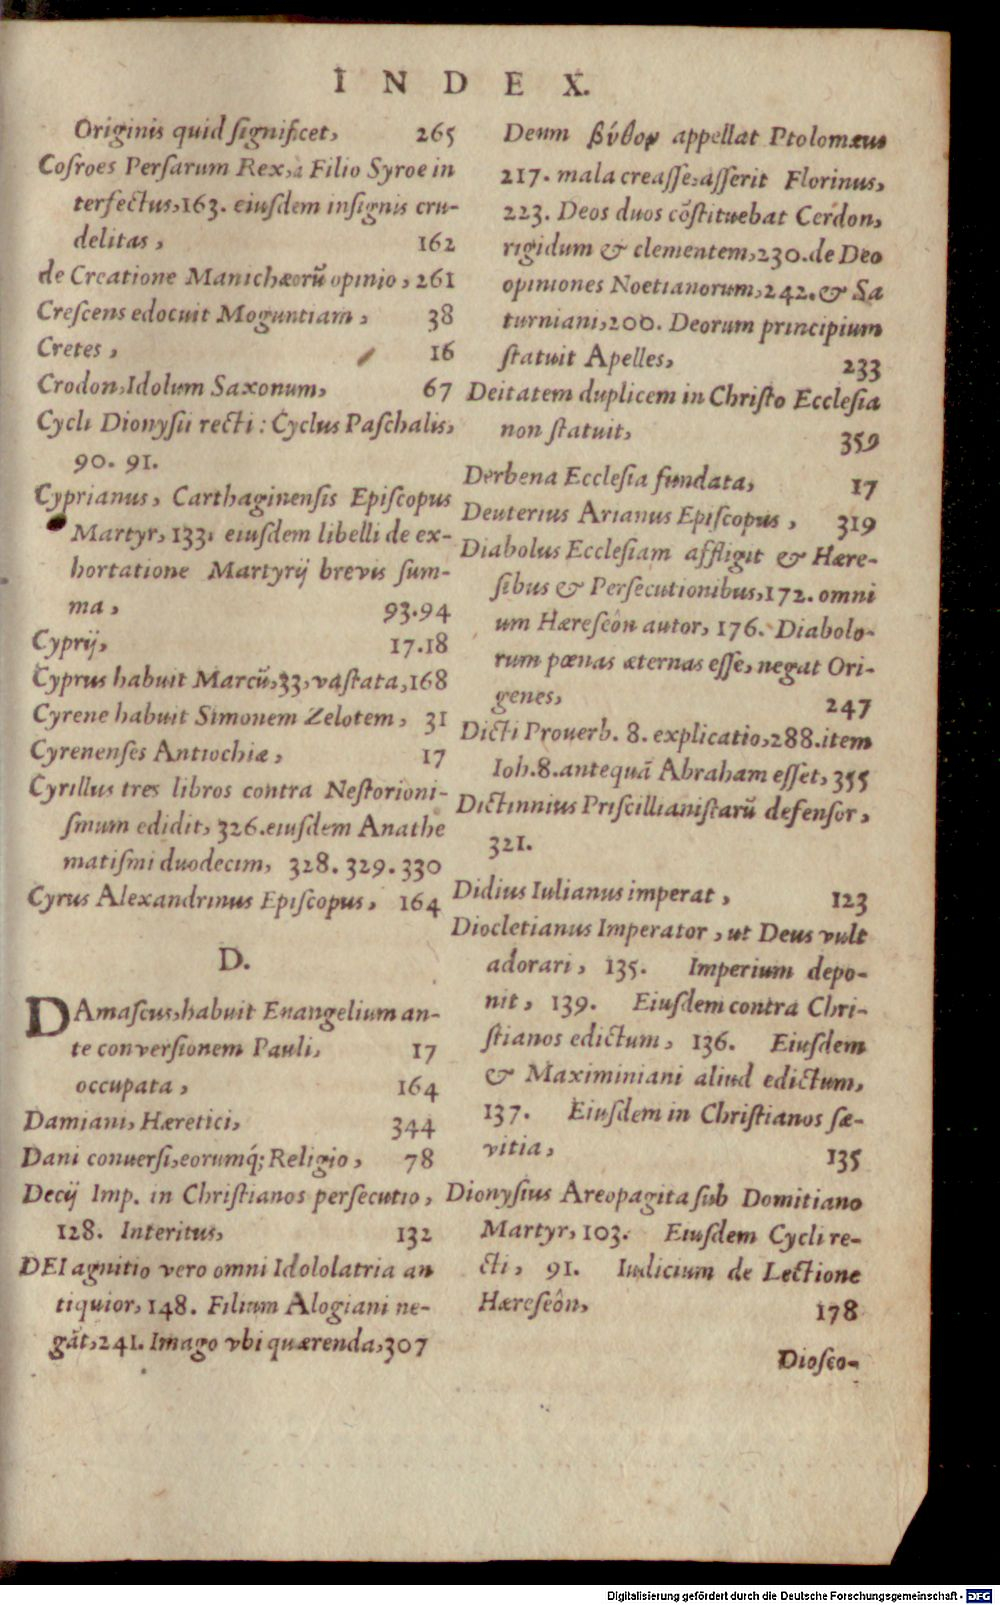 INDEX.
Originis quid significet, 265
Cosroes Persarum Rex, a Filio Syroe in
terfectus, 163. eiusdem insignis cru-
delitas, 162
de Creatione Manichæorũ opinio, 261
Crescens edocuit Moguntiam, 38
Cretes, 16
Crodon, Idolum Saxonum, 67
Cycli Dionysii recti: Cyclus Paschalis,
90. 91.
Cyprianus, Carthaginensis Episcopus
Martyr, 133. eiusdem libelli de ex-
hortatione Martyrij brevis sum-
ma, 93.94
Cyprij, 17.18
Cyprus habuit Marcũ, 33, vastata, 168
Cyrene habuit Simonem Zelotem, 31
Cyrenenses Antiochiæ, 17
Cyrillus tres libros contra Nestorioni-
smum edidit, 326. eiusdem Anathe
matismi duodecim, 328. 329. 330
Cyrus Alexandrinus Episcopus, 164
D.
DAmascus, habuit Euangelium an-
te conversionem Pauli, 17
occupata, 164
Damiani, Hæretici, 344
Dani conuersi, eorumq́; Religio, 78
Decij Imp. in Christianos persecutio,
128. Interitus, 132
DEI agnitio vero omni Idololatria an
tiquior, 148. Filium Alogiani ne-
gãt, 241. Imago vbi quærenda, 307
Deum βύθον appellat Ptolomæus
217. mala creasse, asserit Florinus,
223. Deos duos cõstituebat Cerdon,
rigidum & clementem, 230. de Deo
opiniones Noetianorum, 242. & Sa
turniani, 200. Deorum principium
statuit Apelles, 233
Deitatem duplicem in Christo Ecclesia
non statuit, 359
Derbena Ecclesia fundata, 17
Deuterius Arianus Episcopus, 319
Diabolus Ecclesiam affligit & Hære-
sibus & Persecutionibus, 172. omni
um Hæreseôn autor, 176. Diabolo-
rum pœnas æternas esse, negat Ori-
genes, 247
Dicti Prouerb. 8. explicatio, 288. item
Ioh. 8. antequã Abraham esset, 355
Dictinnius Priscillianistarũ defensor,
321.
Didius Iulianus imperat, 123
Diocletianus Imperator, ut Deus vult
adorari, 135. Imperium depo-
nit, 139. Eiusdem contra Chri-
stianos edictum, 136. Eiusdem
& Maximiniani aliud edictum,
137. Eiusdem in Christianos sæ-
vitia, 135
Dionysius Areopagita sub Domitiano
Martyr, 103. Eiusdem Cycli re-
cti, 91. Iudicium de Lectione
Hæreseôn, 178
Diosco-
Digitalisierung gefördert durch die Deutsche Forschungsgemeinschaft - DFG